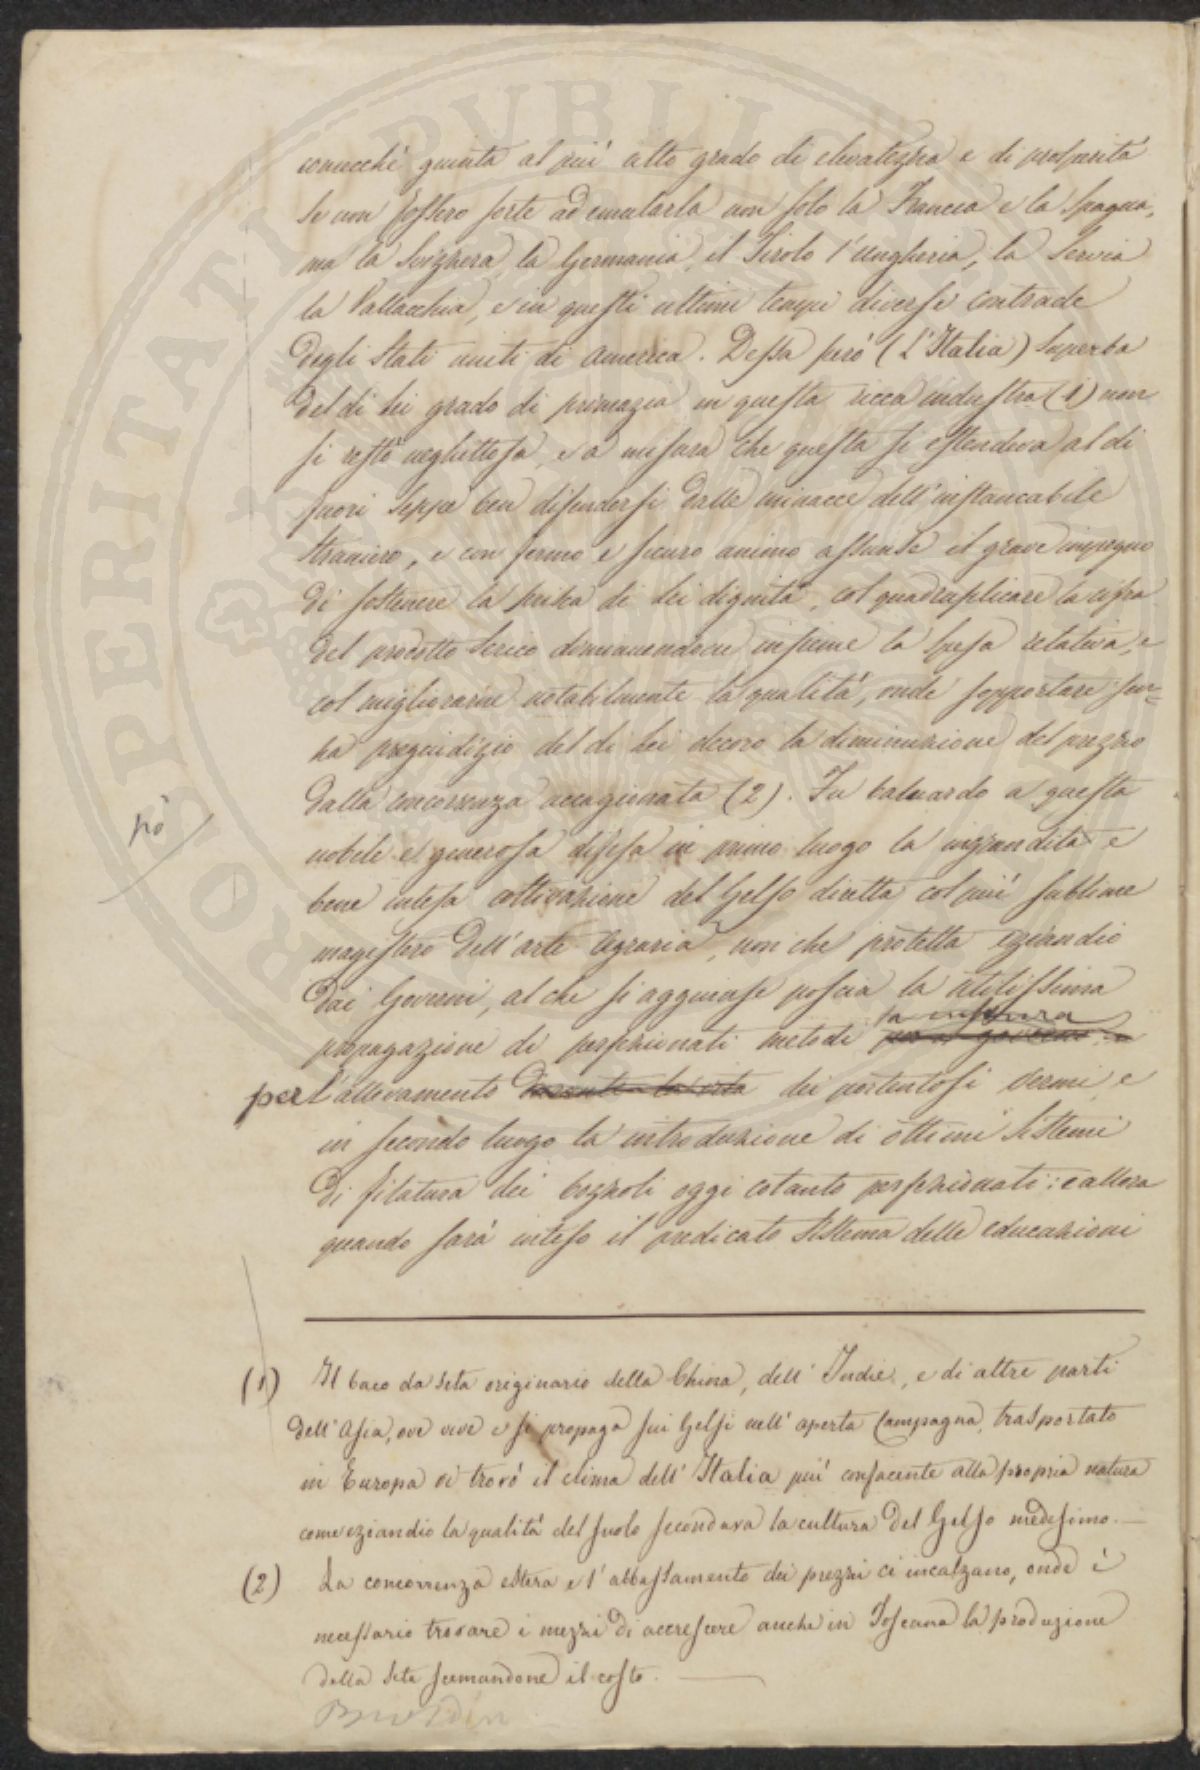 conecché giunta al più alto grado di elevatezza e di prosperità
Se non fossero sorte ad emularla non solo la Francia e la Spagna,
ma la Svizzera, la Germania, il Tirolo l'Ungheria, la Servia
la Vallacchia, e in questi ultimi tempi diverse contrade
degli Stati uniti di America. Dessa però (L'Italia) superba
del di lei grado di primazia in questa ricca industria (1) non
si restò neghittosa, e a misura che questa si estendeva al di
fuori seppe ben difendersi dalle minacce dell'instancabile
straniero, e con fermo e sicuro animo assunse il grave impegno
di sostenere la prisca di lei dignità, col quadruplicare la cifra
del prodotto serico diminuendone insieme la spesa relativa, e
col migliorarne notabilmente la qualità, onde sopportare sen=
za pregiudizio del di lei decoro la diminuzione del prezzo
dalla concorrenza accagionata (2). Fu baluardo a questa
nobile e generosa difesa in primo luogo la ingrandita e
bene intesa coltivazione del Gelso diretta col più sublime
magistero dell'arte Agraria, non che protetta eziandio
dai Governi, al che si aggiunse poscia la utilissima
propagazione di perfezionati metodi
per l'allevamento durante la vita dei portentosi vermi, e
in secondo luogo la introduzione di ottimi sistemi
di filatura dei bozzoli oggi cotanto perfezionati: e allora
quando sarà inteso il predicato sistema delle educazioni
(1) Il baco da seta originario della China, dell'Indie, e di altre parti
dell'Asia, ove vive e si propaga sui Gelsi nell'aperta Campagna, trasportato
in Europa vi trovò il clima dell'Italia più confacente alla propria natura
come eziandio la qualità del suolo secondava la cultura del Gelso medesimo.—
(2) La concorrenza estera e l'abbassamento dei prezzi ci incalzano, onde è
necessario trovare i mezzi di accrescere anche in Toscana la produzione
della seta scemandone il costo. —